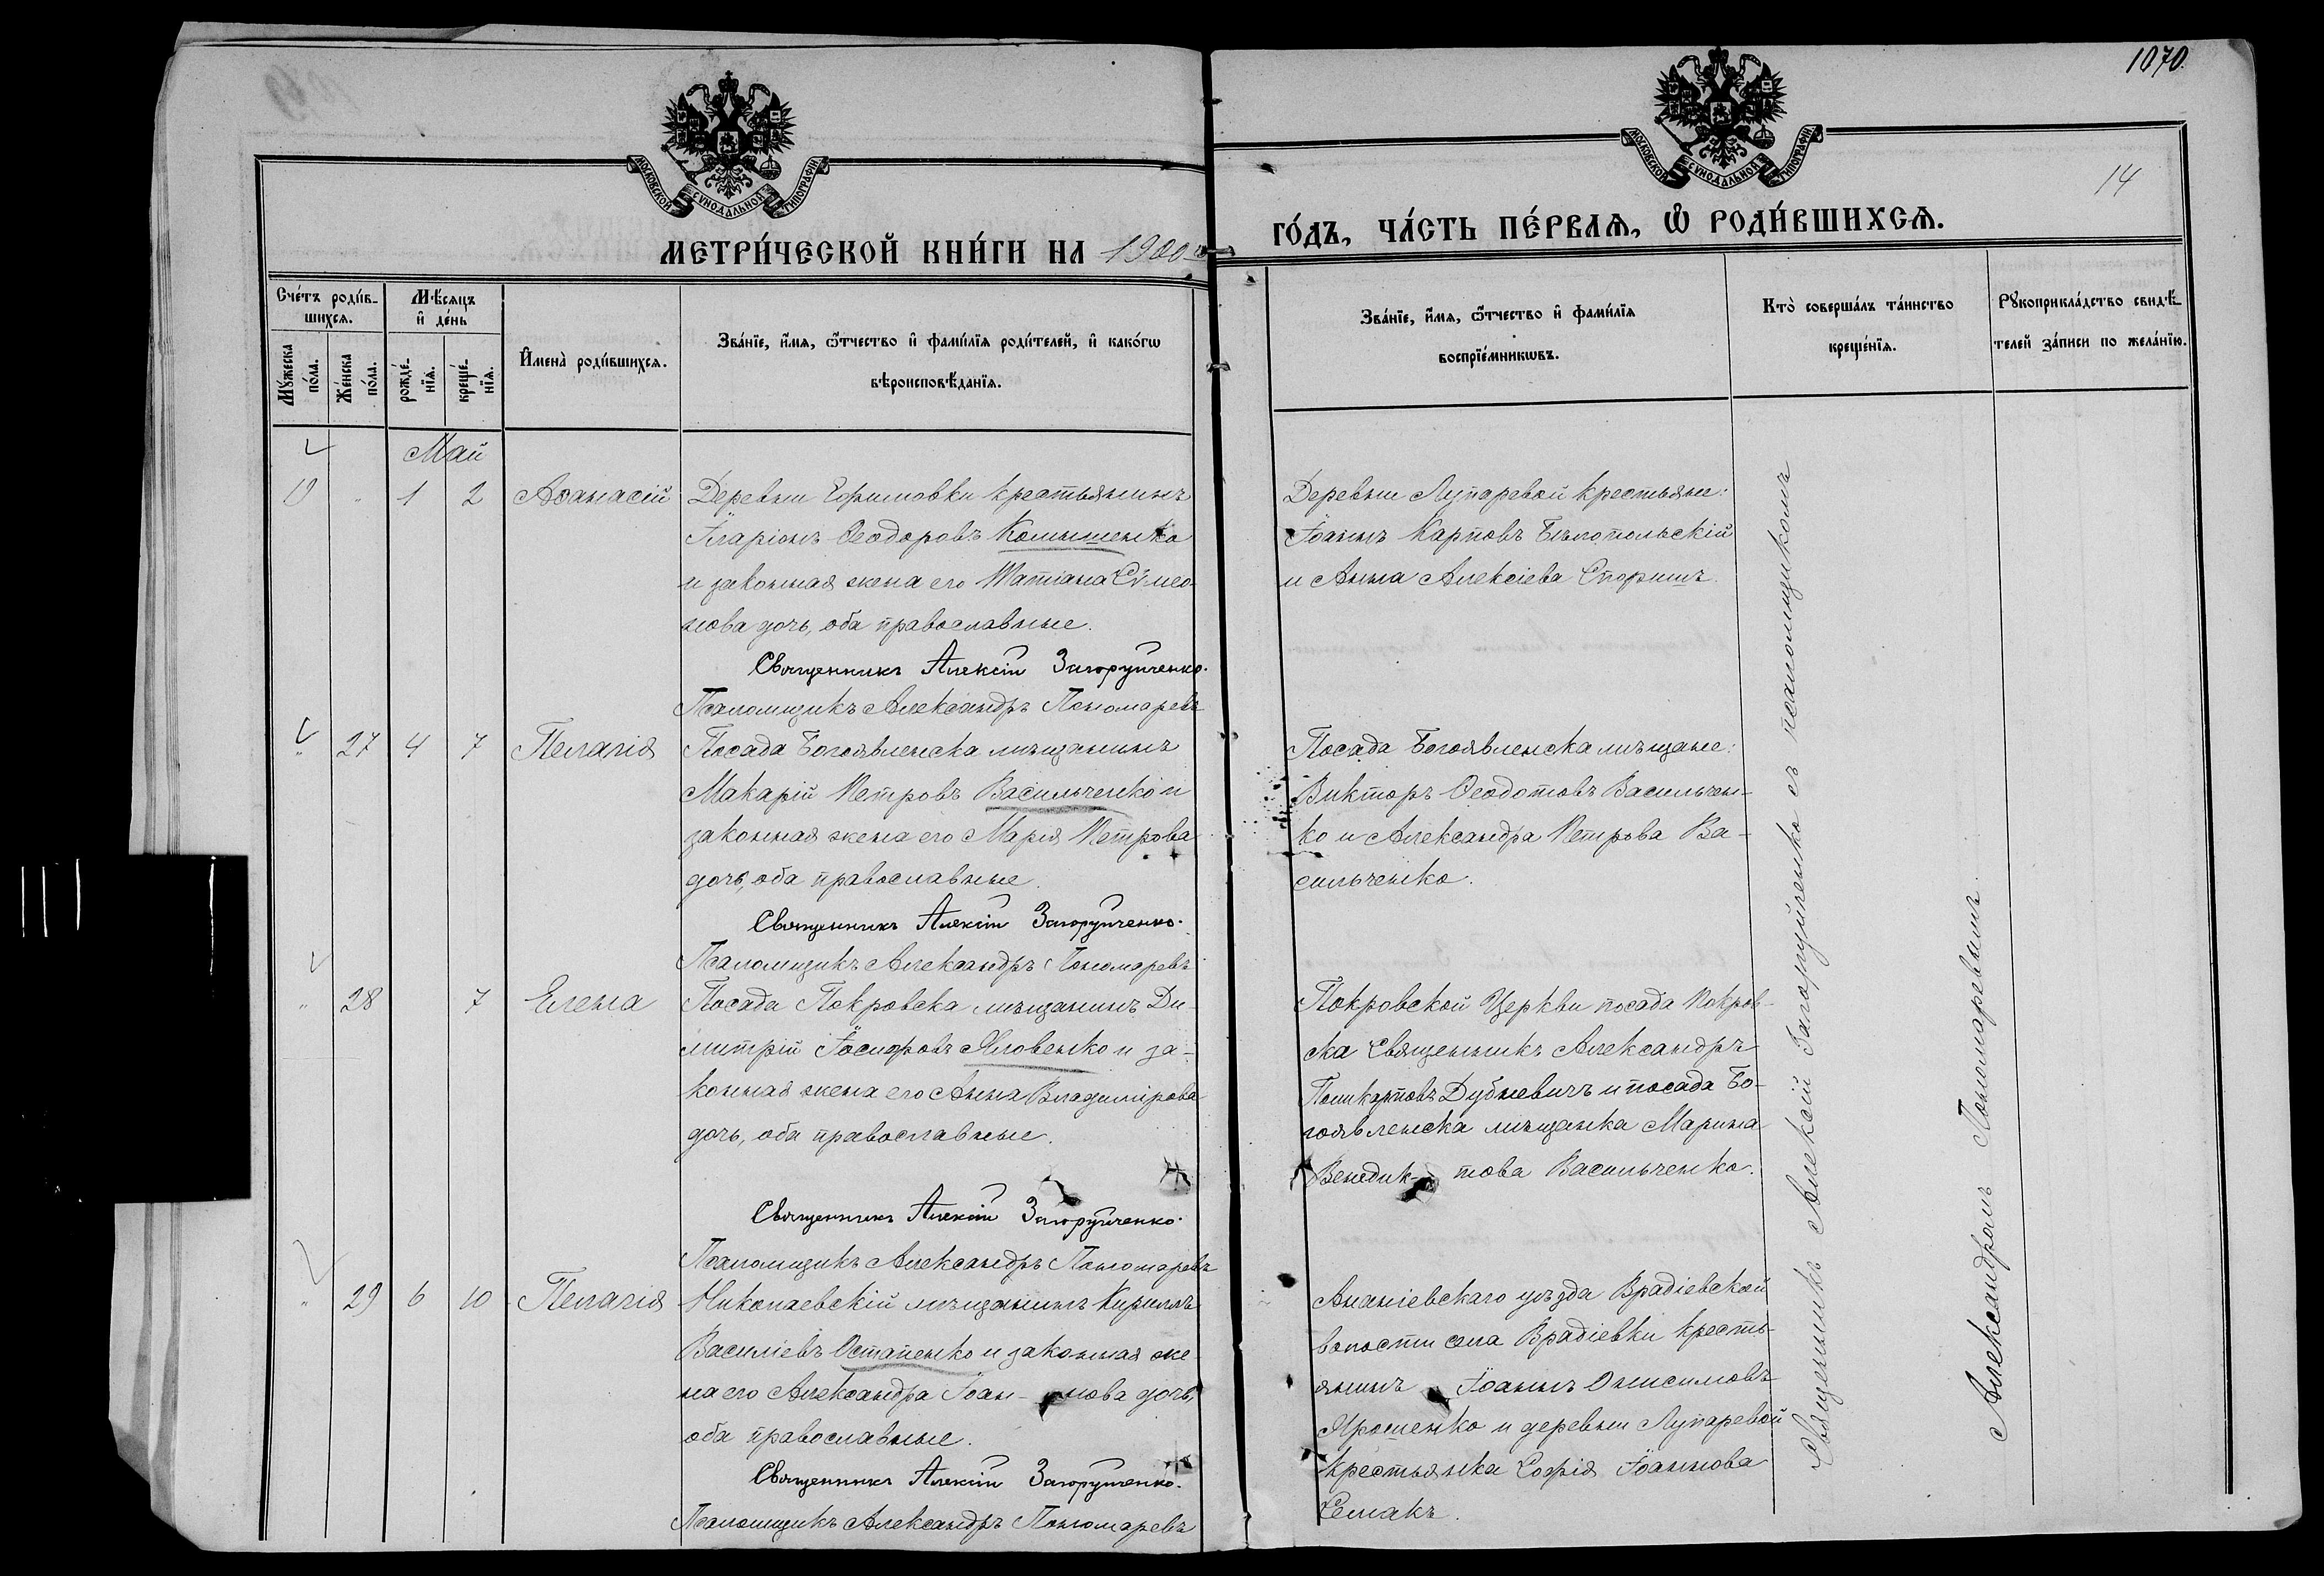 1070.
14
МОСКОВСКОЙ СѴНОДАЛЬНОЙ ТИПОГРАФІИ
МОСКОВСКОЙ СѴНОДАЛЬНОЙ ТИПОГРАФІИ
МЕТРИ́ЧЕСКОЙ КНИ́ГИ НА 1900
ГО́ДЪ, ЧА́СТЬ ПЕ́РВАѦ, Ѡ҆ РОДИ́ВШИХСѦ.
Сче́тъ роди́в-
шихсѧ.
Мѣ́сѧцъ
и҆ де́нь
Мꙋ́жеска
по́ла.
Же́нска
по́ла.
рожде́-
нїѧ.
креще́-
нїѧ.
И҆мена̀ роди́вшихсѧ.
Зва́нїе, и҆́мѧ, ѻ҆́тчество и҆ фами́лїѧ роди́телей, и҆ како́гѡ
вѣроисповѣ́данїѧ.
Зва́нїе, и҆́мѧ, ѻ҆́тчество и҆ фами́лїѧ
воспрїе́мникѡвъ.
Кто̀ соверша́лъ та́инство
креще́нїѧ.
Рꙋкоприкла́дство свидѣ́-
телей за́писи по жела́нїю.
Май
10 " 1 2 Аѳанасій Деревни Ефимовки крестьянинъ
Іларіонъ Ѳеодоровъ Комышенко
и законная жена его Татіана Сѵмео-
нова дочь, оба православные.
Священникъ Алексій Загоруйченко.
Псаломщикъ Александръ Пономаревъ
Деревни Лупаревой крестьяне:
Іоаннъ Карповъ Бѣлопольскій
и Анна Алексіева Сторишъ.
" 27 4 7 Пелагія Посада Богоявленска мѣщанинъ
Макарій Петровъ Васильченко и
законная жена его Марія Петрова
дочь, оба православные.
Священникъ Алексій Загоруйченко.
Псаломщикъ Александръ Пономаревъ
Посада Богоявленска мѣщане:
Викторъ Ѳеодотовъ Васильчен-
ко и Александра Петрова Ва-
сильченко.
" 28 7 Елена Посада Покровска мѣщанинъ Ди-
митрій Іосифовъ Яловенко и за-
конная жена его Анна Владимірова
дочь, оба православные.
Священникъ Алексій Загоруйченко.
Псаломщикъ Александръ Пономаревъ
Покровской Церкви посада Покров-
ска Священникъ Александръ
Поликарповъ Дубневичъ и посада Бо-
гоявленска мѣщанка Марина
Венедик- това Васильченко.
" 29 6 10 Пелагія Николаевскій мѣщанинъ Кириллъ
Василіевъ Остапенко и законная же-
на его Александра Іоан- нова дочь,
оба православные.
Священникъ Алексій Загоруйченко.
Псаломщикъ Александръ Пономаревъ
Ананіевскаго уѣзда Врадіевской
волости села Врадіевки кресть-
янинъ Іоаннъ Онисимовъ
Ярошенко и деревни Лупаревой
крестьянка Софія Іоаннова
Семакъ.
Священникъ Алексій Загоруйченко съ псаломщикомъ
Александромъ Пономаревымъ.